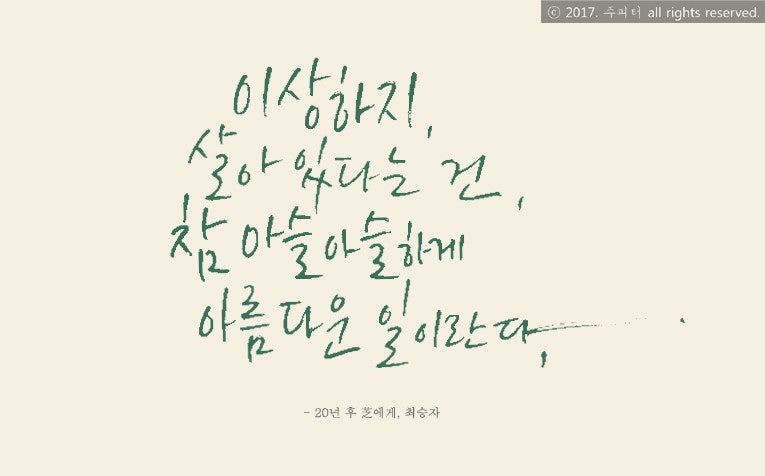 ⓒ 2017. 주피터 all rights reserved.
이상하지,
살아 있다는 건,
참 아슬아슬하게
아름다운 일이란다,
- 20년 후 芝에게, 최승자